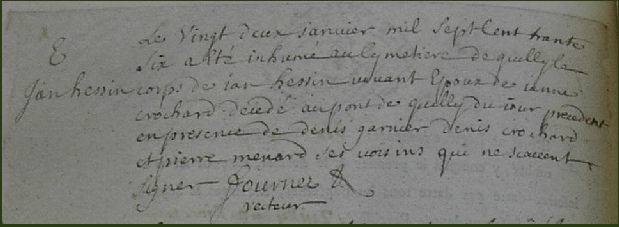 E
Jan hessin
Le Vingt deux janvier mil sept Cent trante
six a Eté inhumé au Cymetiere de quilly le
corps de ian hessin vivant Epoux de ianne
crochard decedé au pont de quilly du iour precedent
en presence de denis garnier denis crochard
et pierre menard ses voisins qui ne scavent
signer fournez
recteur